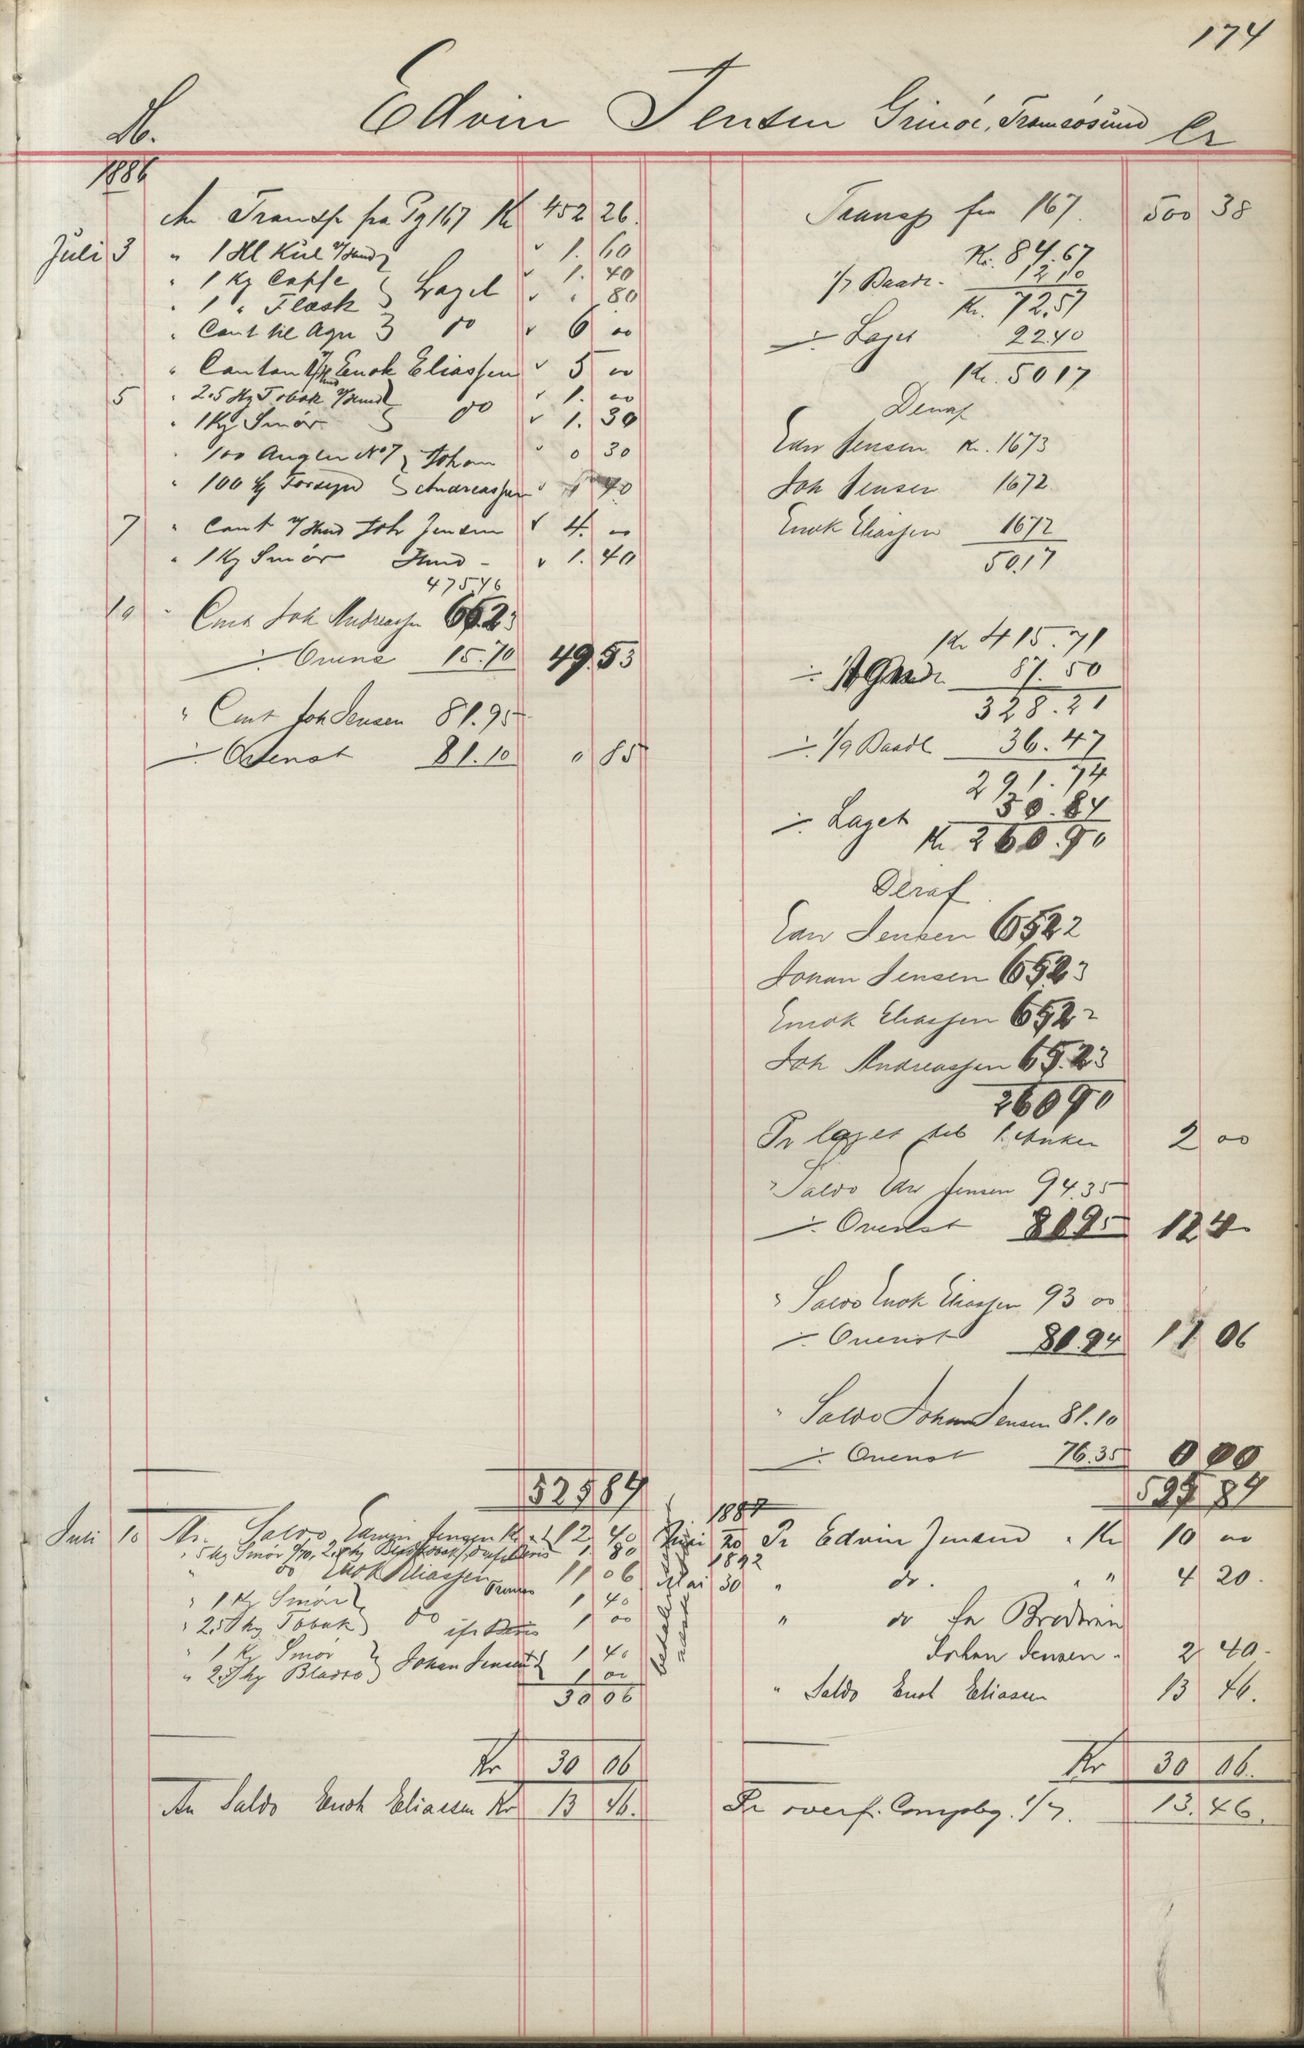 174
Db. Edvin Jensen Grinöe, Tromsösund Cr
1886
An Transp fra Pg 167 Kr 452 26.
Juli 3 " 1 Hl Kul v/Hmd " 1. 60
" 1 Kg Caffe } Laget " 1. 40
" 1 " Flesk " " 80
" Cont til Agn } do " 6 00
" Contant Enok Eliassen " 5 00
5 " 2.5 Hg Tobak v/Hmd } do " 1. 00
" 1 Kg Smör " 1. 30
" 100 Angler No 7 } Johan " 0 30
" 100 Forsyn } Andreassen " 1 40
7 " Cont v/Hmd Joh Jensen " 4. 00
" 1 Kg Smör Hmd - " 1. 40
475 46
10 " Cont Joh Andreassen 65.23
÷ Ovens 15.70 49.53
" Cont Joh Jensen 81.95
÷ Ovenst 81.10 0 85
525 84
Juli 10 An Saldo Edwin Jensen Kr 12. 40
1. 80
" do Enok Eliassen 11 06
" 1 Kg Smör 1 40
" 2.5 hg Tobak } do 1 00
" 1 Kg Smör } Johan Jensen 1 40
" 2.5 hg 1 00
30 06
Kr 30 06
An Saldo Enok Eliassen Kr 13 46.
Transp fra 167. 500 38
Kr. 84.67
12.10
Kr. 72.57
÷ Laget 22.40
Kr. 50.17
Deraf
Edv Jensen Kr. 1673
Joh Jensen 1672
Enok Eliassen 1672
50.17
Kr 415.71
÷ 87.50
328.21
÷ 36.47
291.74
÷ Laget 30.84
Kr 260.90
Deraf
Edv Jensen 65 22
Johan Jensen 65 23
Enok Eliassen 65 22
Joh Andreassen 65.23
260 90
Pr laget 1 Anker 2 00
" Saldo Edv Jensen 94.35
÷ Ovenst 81 95 12 40
" Saldo Enok Eliassen 93 00
÷ Ovenst 81.94 11 06
" Saldo Johan Jensen 81.10
÷ Ovenst 76.35 0 00
525 84
1887
20 Pr Edvin Jensen " Kr 10 00
1892
Mai 30 " do. " " 4 20.
" do fra Broderen
Johan Jensen. 2 40.
" Saldo Enok Eliassen 13 46.
Kr 30 06.
Pr overf. 1/7. 13.46.